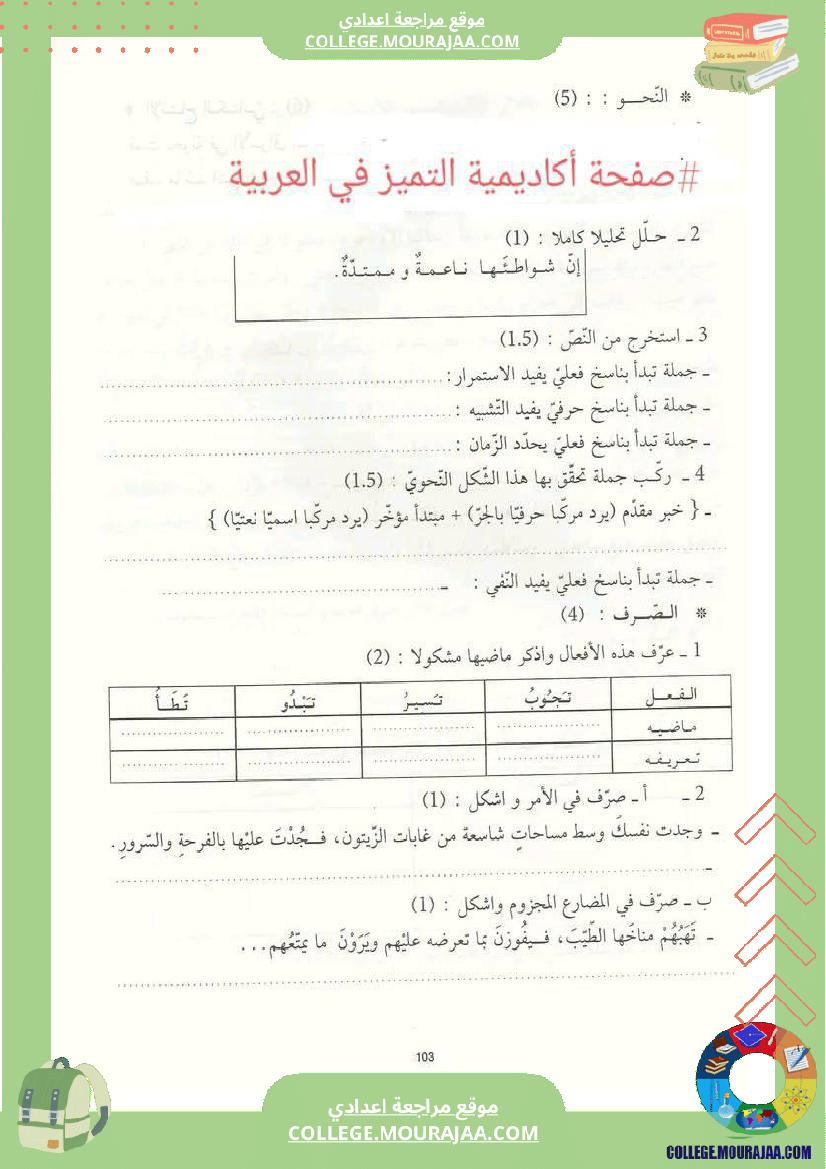 موقع مراجعة اعدادي
COLLEGE.MOURAJAA.COM
* النّحـــو : : (5)
#صفحة أكاديمية التميز في العربية
2 ـ حـلّل تحليلا كاملا : (1)
إنّ شـواطـئَـهـا نـاعـمـةٌ و مـمـتـدّةٌ.
3 ـ استخرج من النّصّ : (1.5)
ـ جملة تبدأ بناسخ فعليّ يفيد الاستمرار: ........................
ـ جملة تبدأ بناسخ حرفيّ يفيد التّشبيه : ........................
ـ جملة تبدأ بناسخ فعليّ يحدّد الزّمان : ........................
4 ـ ركّـب جملة تحقّق بها هذا الشّكل النّحويّ : (1.5)
ـ { خبر مقدّم (يرد مركّبا حرفيّا بالجرّ) + مبتدأ مؤخّر (يرد مركّبا اسميّا نعتيّا) }
ـ جملة تبدأ بناسخ فعليّ يفيد النّفي : ـ ........................
* الـصّـرف : (4)
1 ـ عرّف هذه الأفعال واذكر ماضيها مشكولا : (2)
الـفـعـل تـَجُوبُ تـَسـيـرُ تـَبْـدُو تـَطَـأُ
مـاضـيـه
تـعـريـفـه
2 ـ أ ـ صرّف في الأمر و اشكل : (1)
ـ وجدت نفسكَ وسط مساحاتٍ شاسعة من غابات الزّيتون، فـجُدْتَ عليْها بالفرحةِ والسّرورِ.
ـ ........................
ب ـ صرّف في المضارع المجزوم واشكل : (1)
ـ تَهَبُهُمْ مناخُها الطّيّبَ، فـيفُوزنَ ممّا تعرضه عليْهم ويَرَوْنَ ما يمتّعُهم...
103
موقع مراجعة اعدادي
COLLEGE.MOURAJAA.COM
COLLEGE.MOURAJAA.COM